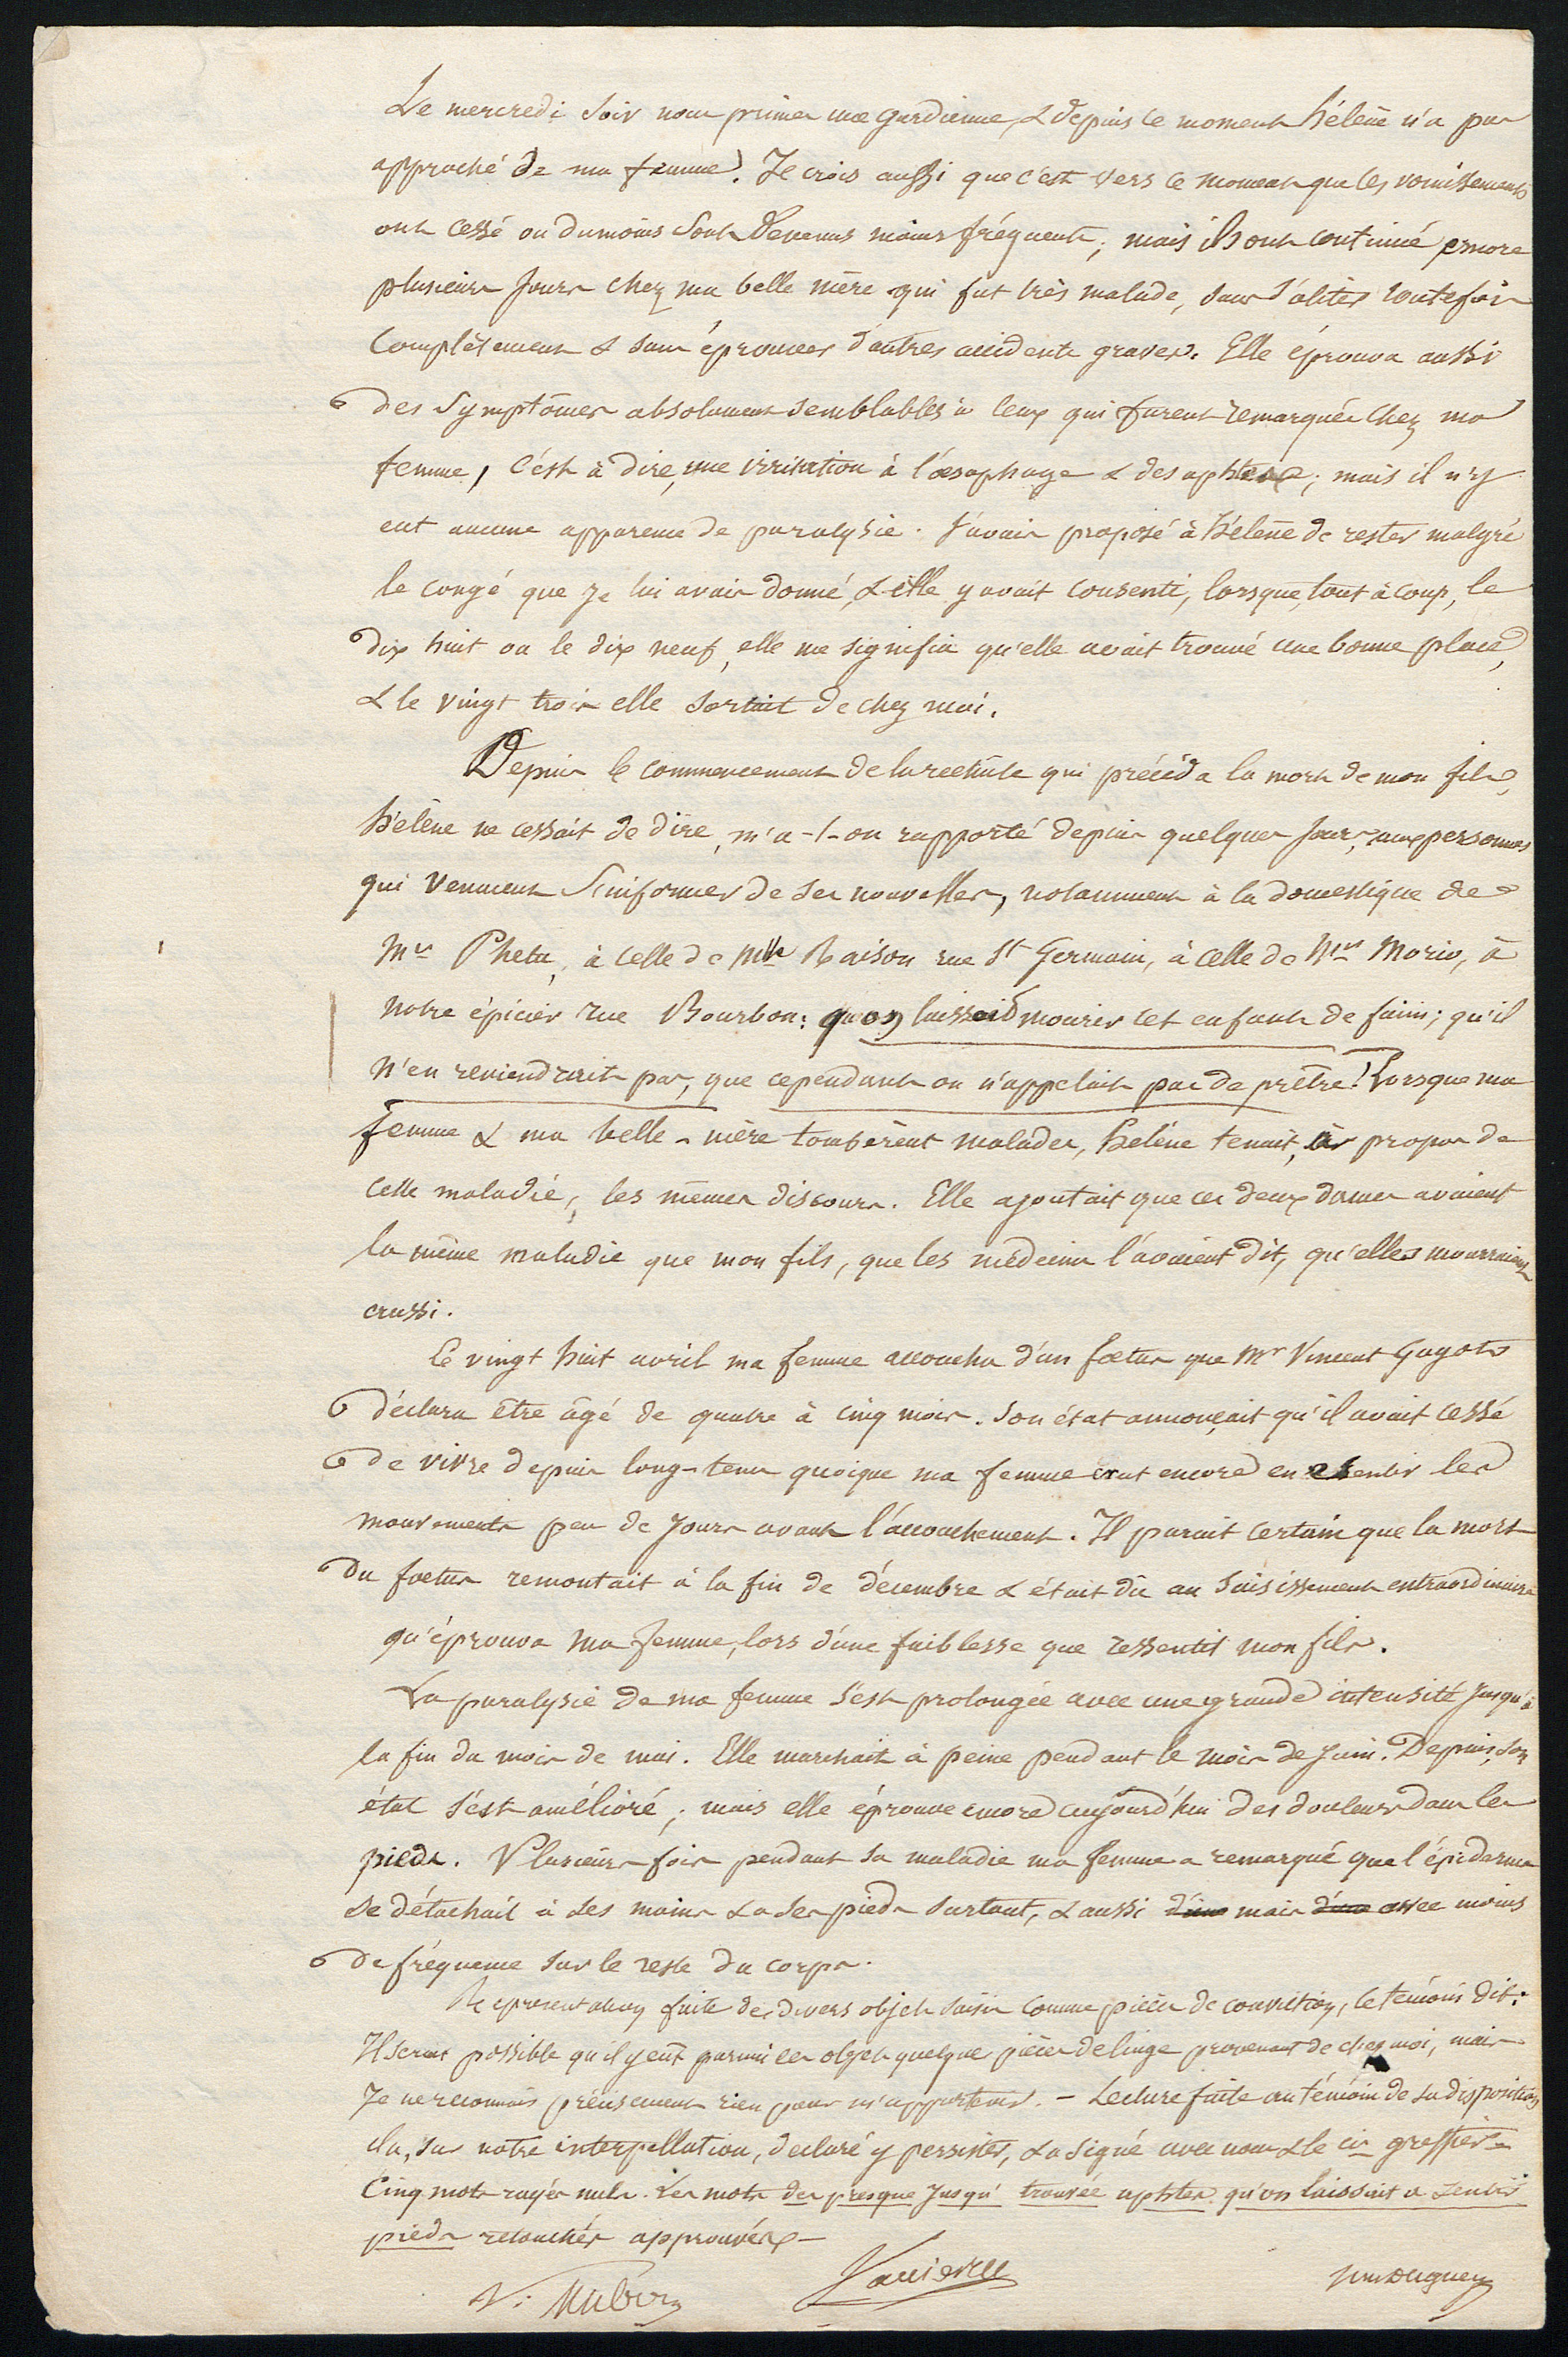 Le mercredi soir nous prîmes une gardienne, & depuis ce moment hélène n'a pas
approché de ma femme. Je crois aussi que c'est vers ce moment que les vomissements
ont cessé ou dumoins sont devenus moins fréquents; mais ils ont continué encore
plusieurs jours chez ma belle mère qui fut très malade, sans s'aliter toutefois
complètement & sans éprouver d'autres accidents graves. Elle éprouva aussi
des symptômes absolument semblables à ceux qui furent remarqués chez ma
femme, c'est à dire, une irritation à l'œsophage & des aphtes; mais il n'y
eut aucune apparence de paralysie. J'avais proposé à hélène de rester malgré
le congé que je lui avais donné, & elle y avait consenti, lorsque, tout à coup, le
dix huit ou le dix neuf, elle me signifia qu'elle avait trouvé une bonne place,
& le vingt trois elle sortait de chez moi.
Depuis le commencement de la rechûte qui précéda la mort de mon fils,
hélène ne cessait de dire, m'a-t-on rapporté depuis quelques jours, aux personnes
qui venaient s'informer de ses nouvelles, notamment à la domestique de
Mr Phetu, à celle de Mlle Raison rue St Germain, à celle de Mr Morio, à
notre épicier rue Bourbon: qu'on laissait mourir cet enfant de faim; qu'il
n'en reviendrait pas, que cependant on n'appelait pas de prêtre! Lorsque ma
femme & ma belle-mère tombèrent malades, hélène tenait, à propos de
cette maladie, les mêmes discours. Elle ajoutait que ces deux dames avaient
la même maladie que mon fils, que les médecins l'avaient dit, qu'elles mourraient
aussi.
Le vingt huit avril ma femme accoucha d'un fœtus que Mr Vincent Guyot
déclara être âgé de quatre à cinq mois. Son état annonçait qu'il avait cessé
de vivre depuis long-tems quoique ma femme crut encore en sentir les
mouvements peu de jours avant l'accouchement. Il parait certain que la mort
du fœtus remontait à la fin de décembre & était dû au saisissement extraordinaire
qu'éprouva ma femme, lors d'une faiblesse que ressentit mon fils.
La paralysie de ma femme s'est prolongée avec une grande intensité jusqu'à
la fin du mois de mai. Elle marchait à peine pendant le mois de juin. Depuis, son
état s'est amélioré; mais elle éprouve encore aujourd'hui des douleurs dans les
pieds. Plusieurs fois pendant sa maladie ma femme a remarqué que l'épiderme
se détachait à ses mains & à ses pieds surtout, & aussi mais avec moins
de fréquence sur le reste du corps.
Représentation faite des divers objets saisis comme pièces de conviction, le témoin dit:
Il serait possible qu'il y eût parmi ces objets quelques pièces de linge provenant de chez moi, mais
Je ne reconnais précisément rien pour m'appartenir. – Lecture faite au témoin de sa disposition,
il a, sur notre interpellation, declaré y persister, & a signé avec nous & le cis greffier.
Cinq mots rayés nuls. Les mots des presque jusqu' trouvée aphtes qu'on laissait a sentir
pieds retouchés approuvés –